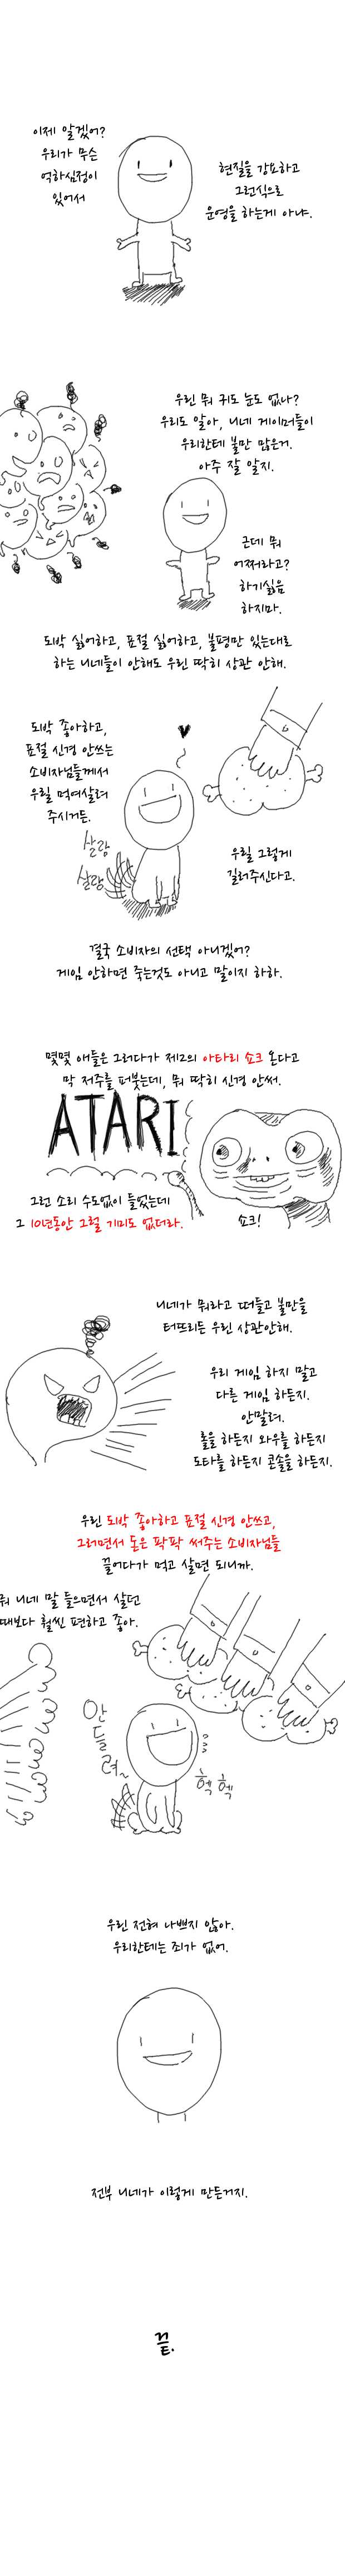 이제 알겠어?
우리가 무슨
억하심정이
있어서
현질을 강요하고
그런식으로
운영을 하는게 아냐.
우린 뭐 귀도 눈도 없나?
우리도 알아, 니네 게이머들이
우리한테 불만 많은거.
아주 잘 알지.
근데 뭐
어쩌라고?
하기싫음
하지마.
도박 싫어하고, 표절 싫어하고, 불평만 있는대로
하는 니네들이 안해도 우린 딱히 상관 안해.
도박 좋아하고,
표절 신경 안쓰는
소비자님들께서
우릴 먹여살려
주시거든.
살랑
살랑
우릴 그렇게
길러주신다고.
결국 소비자의 선택 아니겠어?
게임 안하면 죽는것도 아니고 말이지 하하.
몇몇 애들은 그러다가 제2의 아타리 쇼크 온다고
막 저주를 퍼붓는데, 뭐 딱히 신경 안써.
ATARI
그런 소리 수도없이 들었는데
그 10년동안 그럴 기미도 없더라.
쇼크!
니네가 뭐라고 떠들고 불만을
터뜨리든 우린 상관안해.
우리 게임 하지 말고
다른 게임 하든지.
안말려.
롤을 하든지 와우를 하든지
도타를 하든지 콘솔을 하든지.
우린 도박 좋아하고 표절 신경 안쓰고,
그러면서 돈은 팍팍 써주는 소비자님들
끌어다가 먹고 살면 되니까.
뭐 니네 말 들으면서 살던
때보다 훨씬 편하고 좋아.
안들려~
헥헥
우린 전혀 나쁘지 않아.
우리한테는 죄가 없어.
전부 니네가 이렇게 만든거지.
끝.